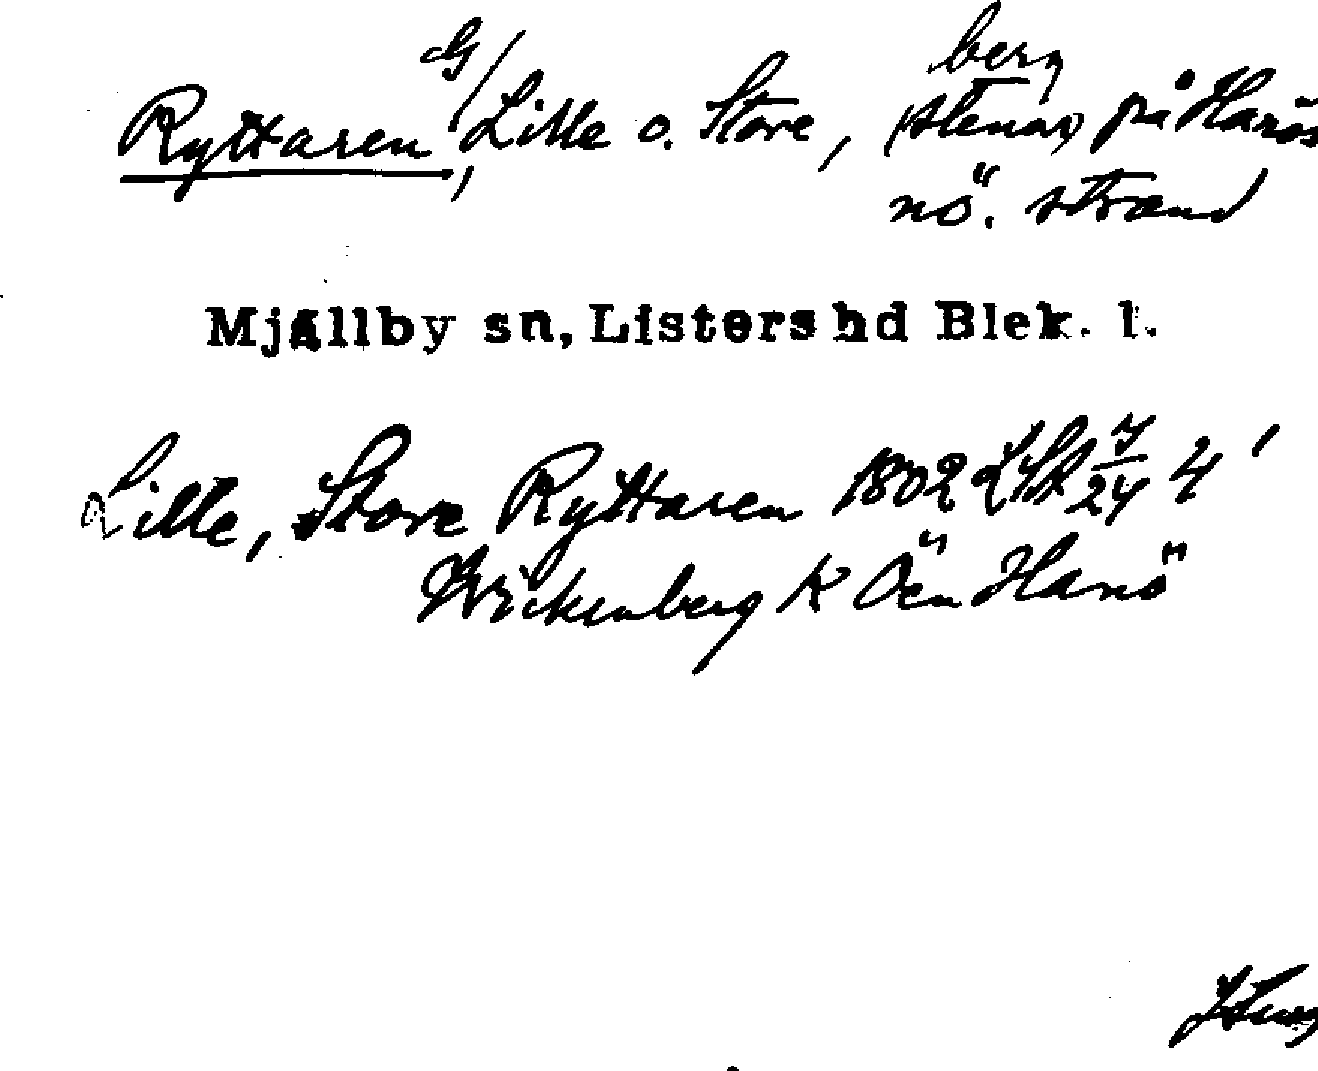 berg
Ryttaren, Lille o. Store, (stenar) på Hanös
nö. strand
Mjällby sn, Listers hd Blek. l.
Lille, Store Ryttaren 1802 LSA 7/24 4'
Wickenberg K Öën Hanö